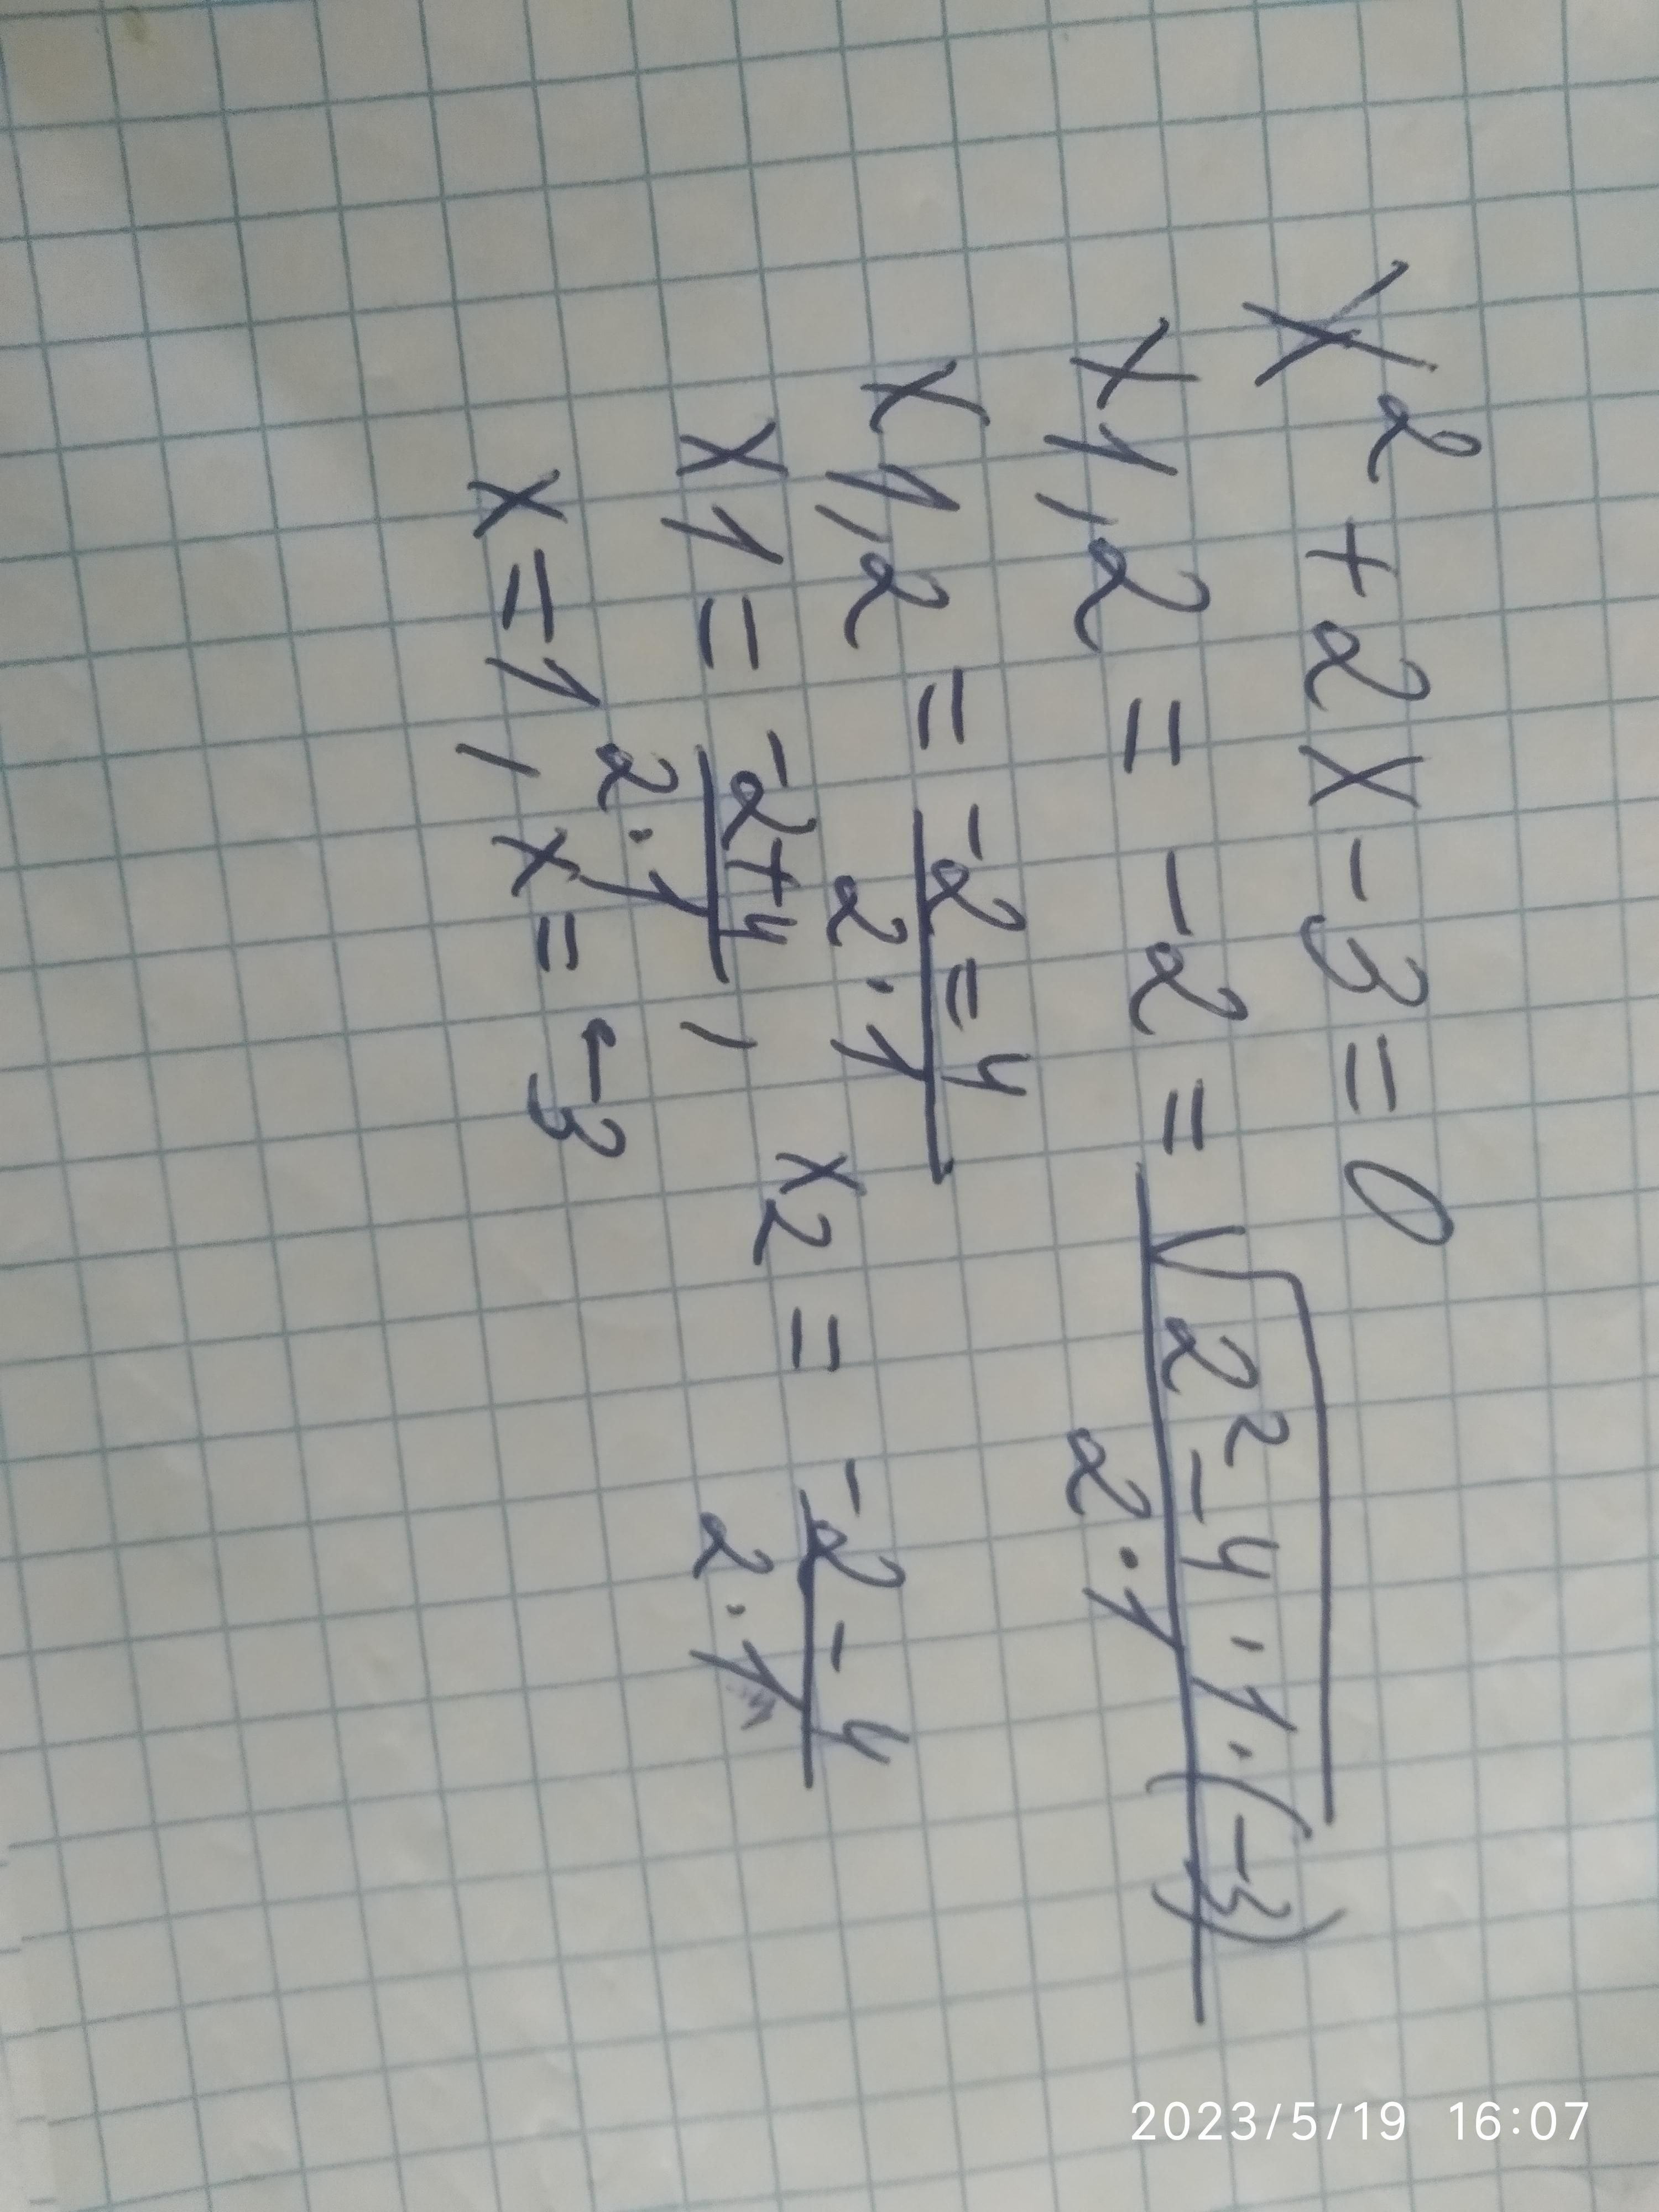 x² + 2x - 3 = 0
x1,2 = -2 = √2² - 4 · 1 · (-3)
2 · 1
x1,2 = -2 = 4
2 · 1
x1 = -2+4 , x2 = -2 - 4
2 · 1 2 · 1
x = 1 , x = -3
2023/5/19 16:07